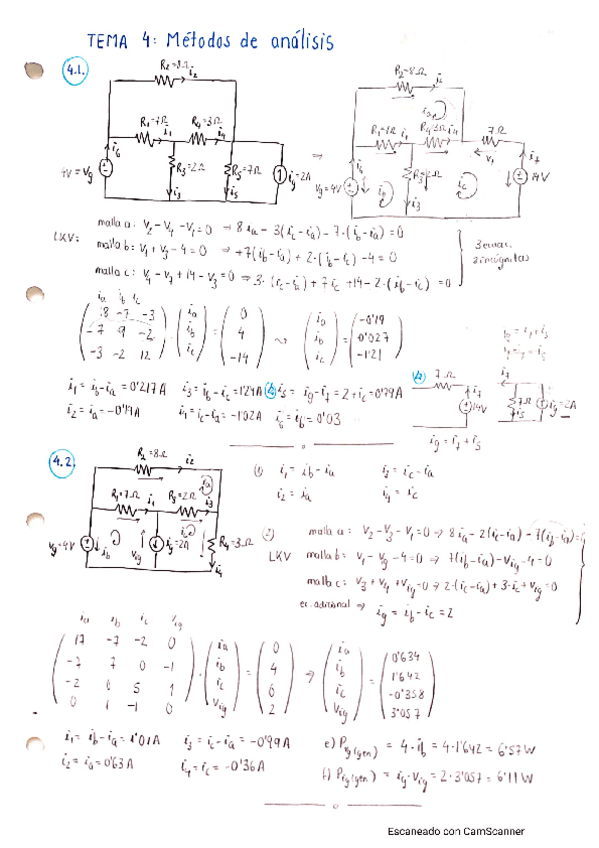 TEMA 4: Métodos de análisis
4.1.
R2=8Ω
i2
R1=7Ω i1 R4=3Ω i4
4V=Vg i6 R3=2Ω i3 R5=7Ω i5 ig=2A
⇒
R2=8Ω
ia
R1=7Ω i1 R4=3Ω i4 7Ω
Vg=4V i6 ib R3=2Ω i3 ic V7 i7 14V
LKV:
malla a: V2-V4-V1=0 → 8ia-3(ic-ia)-7·(ib-ia)=0
malla b: V1+V3-4=0 → +7(ib-ia)+2·(ib-ic)-4=0
malla c: V4-V7+14-V3=0 ⇒ 3·(ic-ia)+7ic+14-2·(ib-ic)=0
3 ecuac.
3 incógnitas
ia ib ic
18 -7 -3
-7 9 -2
-3 -2 12
ia
ib
ic
=
0
4
-14
ia
ib
ic
=
-0'19
0'027
-1'21
i1=ib-ia=0'217A i3=ib-ic=1'24A i5=ig-i7=2+ic=0'79A
i2=ia=-0'19A i4=ic-ia=-1'02A i6=ib=0'03
7Ω i7 14V
i7 7Ω i5 ig=2A
ig=i7+i5
4.2.
R2=8Ω i2
R1=7Ω i1 R3=2Ω ia i3
Vg=4V ib Vig ig=2A ic R4=3Ω i4
(1) i1=ib-ia i3=ic-ia
i2=ia i4=ic
LKV
malla a: V2-V3-V1=0 → 8ia-2(ic-ia)-7(ib-ia)=0
malla b: V1-Vg-4=0 → 7(ib-ia)-Vig-4=0
malla c: V3+V4+Vig=0 → 2·(ic-ia)+3·ic+Vig=0
ec. adicional ⇒ ig=ib-ic=2
ia ib ic Vig
17 -7 -2 0
-7 7 0 -1
-2 0 5 1
0 1 -1 0
ia
ib
ic
Vig
=
0
4
0
2
→
ia
ib
ic
Vig
=
0'634
1'642
-0'358
3'057
i1=ib-ia=1'01A i3=ic-ia=-0'99A e) Pvg(gen) = 4·ib = 4·1'642 = 6'57W
i2=ia=0'63A i4=ic=-0'36A f) Pig(gen) = ig·Vig = 2·3'057 = 6'11W
Escaneado con CamScanner